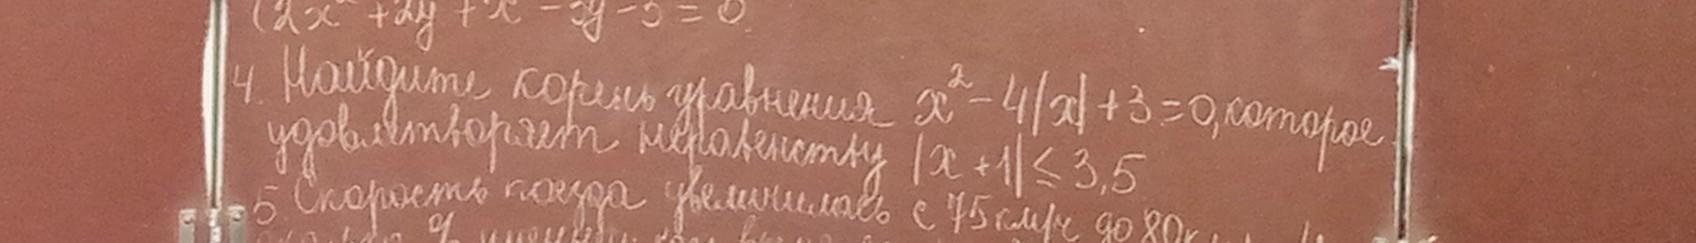 2x² + 2y + x - 5y - 5 = 0
4. Найдите корень уравнения x² - 4|x| + 3 = 0, которое
удовлетворяет неравенству |x + 1| ≤ 3,5
5. Скорость поезда увеличилась с 75 км/ч до 80